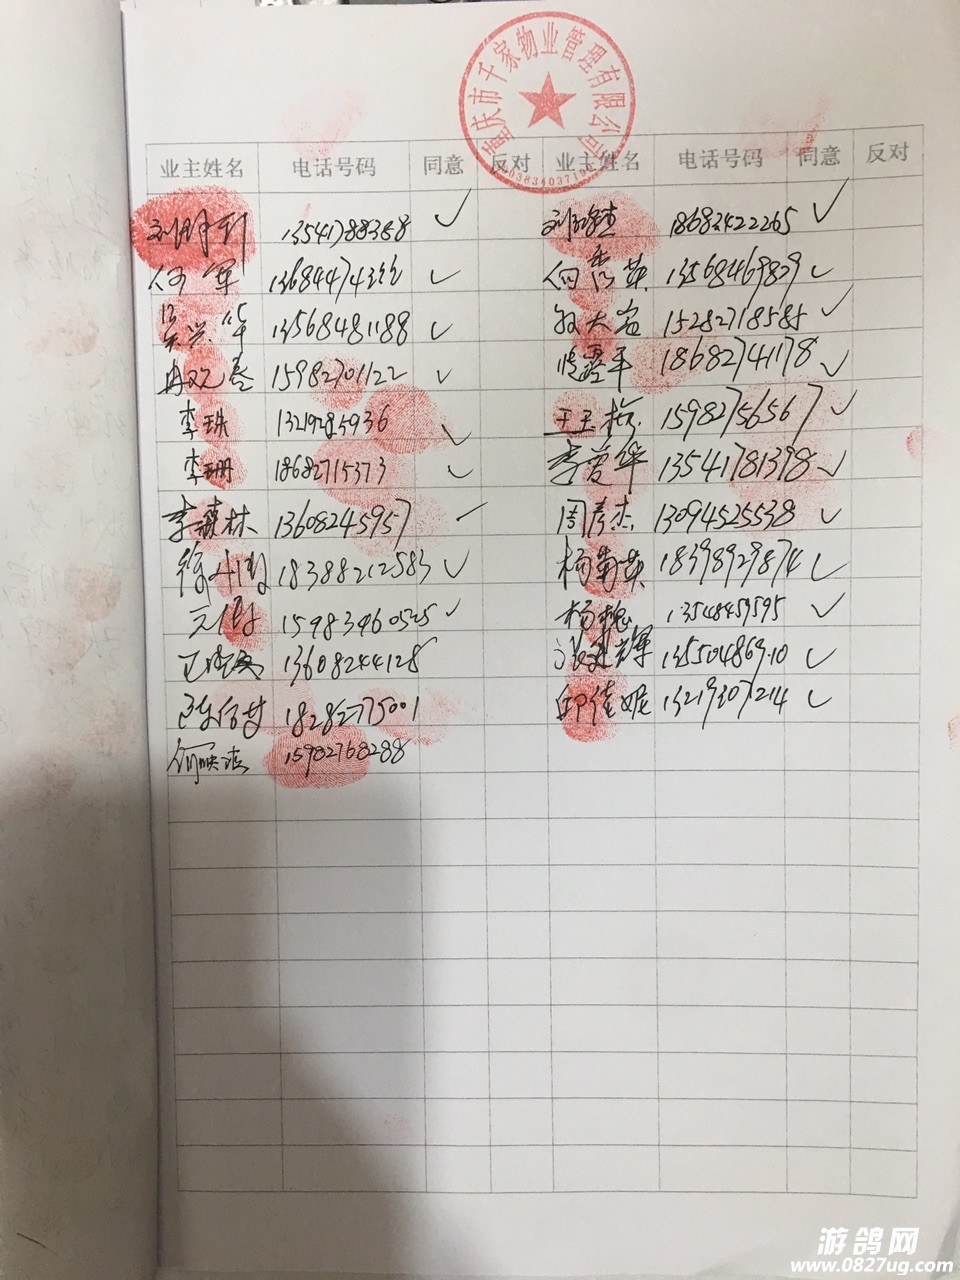 重庆市千家物业管理有限公司
业主姓名 电话号码 同意 反对 业主姓名 电话号码 同意 反对
刘明 13541788388 ✓ 刘 18683422265 ✓
何军 ✓ 向秀英 13568469829 ✓
吴兴华 13568481188 ✓ 15282718585 ✓
冉 15982701122 ✓ 平 18682741178 ✓
李珠 13219285936 ✓ 王玉 15982756567 ✓
李珊 18682715373 ✓ 李爱华 13541781398 ✓
李森林 13608245957 ✓ 周彦杰 13094525538 ✓
徐 18388212583 ✓ 杨菊英 18398929874 ✓
15983960525 ✓ 杨艳 13548459595 ✓
13608244128 辉 13550486910 ✓
18282775001 邱佳妮 13219307214 ✓
何 15982768288
游鸽网
www.0827ug.com